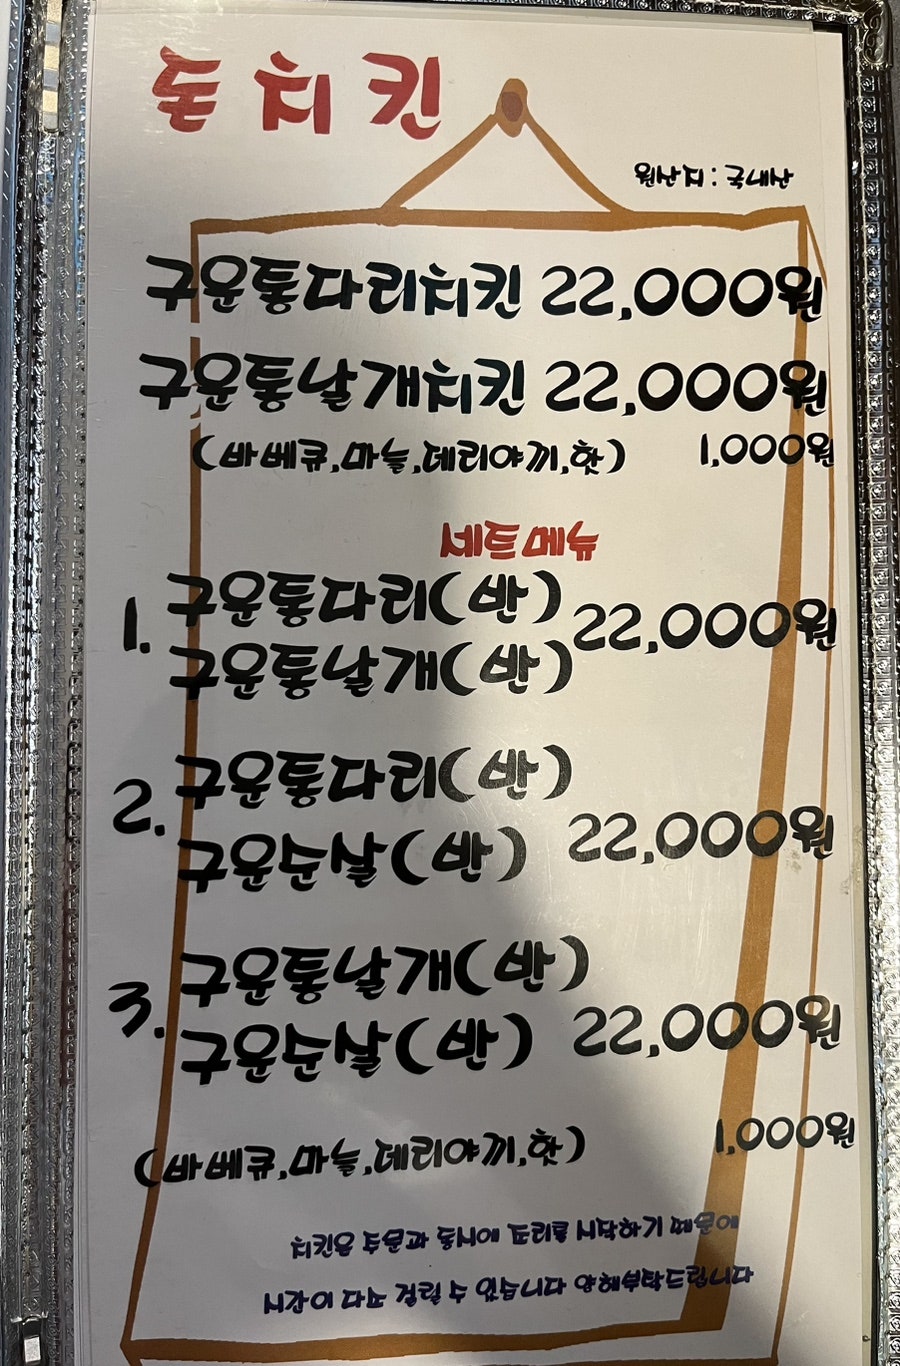 논치킨
원산지 : 국내산
구운통다리치킨 22,000원
구운통날개치킨 22,000원
(바베큐,마늘,데리야끼,핫) 1,000원
세트메뉴
1. 구운통다리(반)
구운통날개(반) 22,000원
2. 구운통다리(반)
구운순살(반) 22,000원
3. 구운통날개(반)
구운순살(반) 22,000원
(바베큐,마늘,데리야끼,핫) 1,000원
치킨은 주문과 동시에 조리를 시작하기 때문에
시간이 다소 걸릴 수 있습니다 양해부탁드립니다